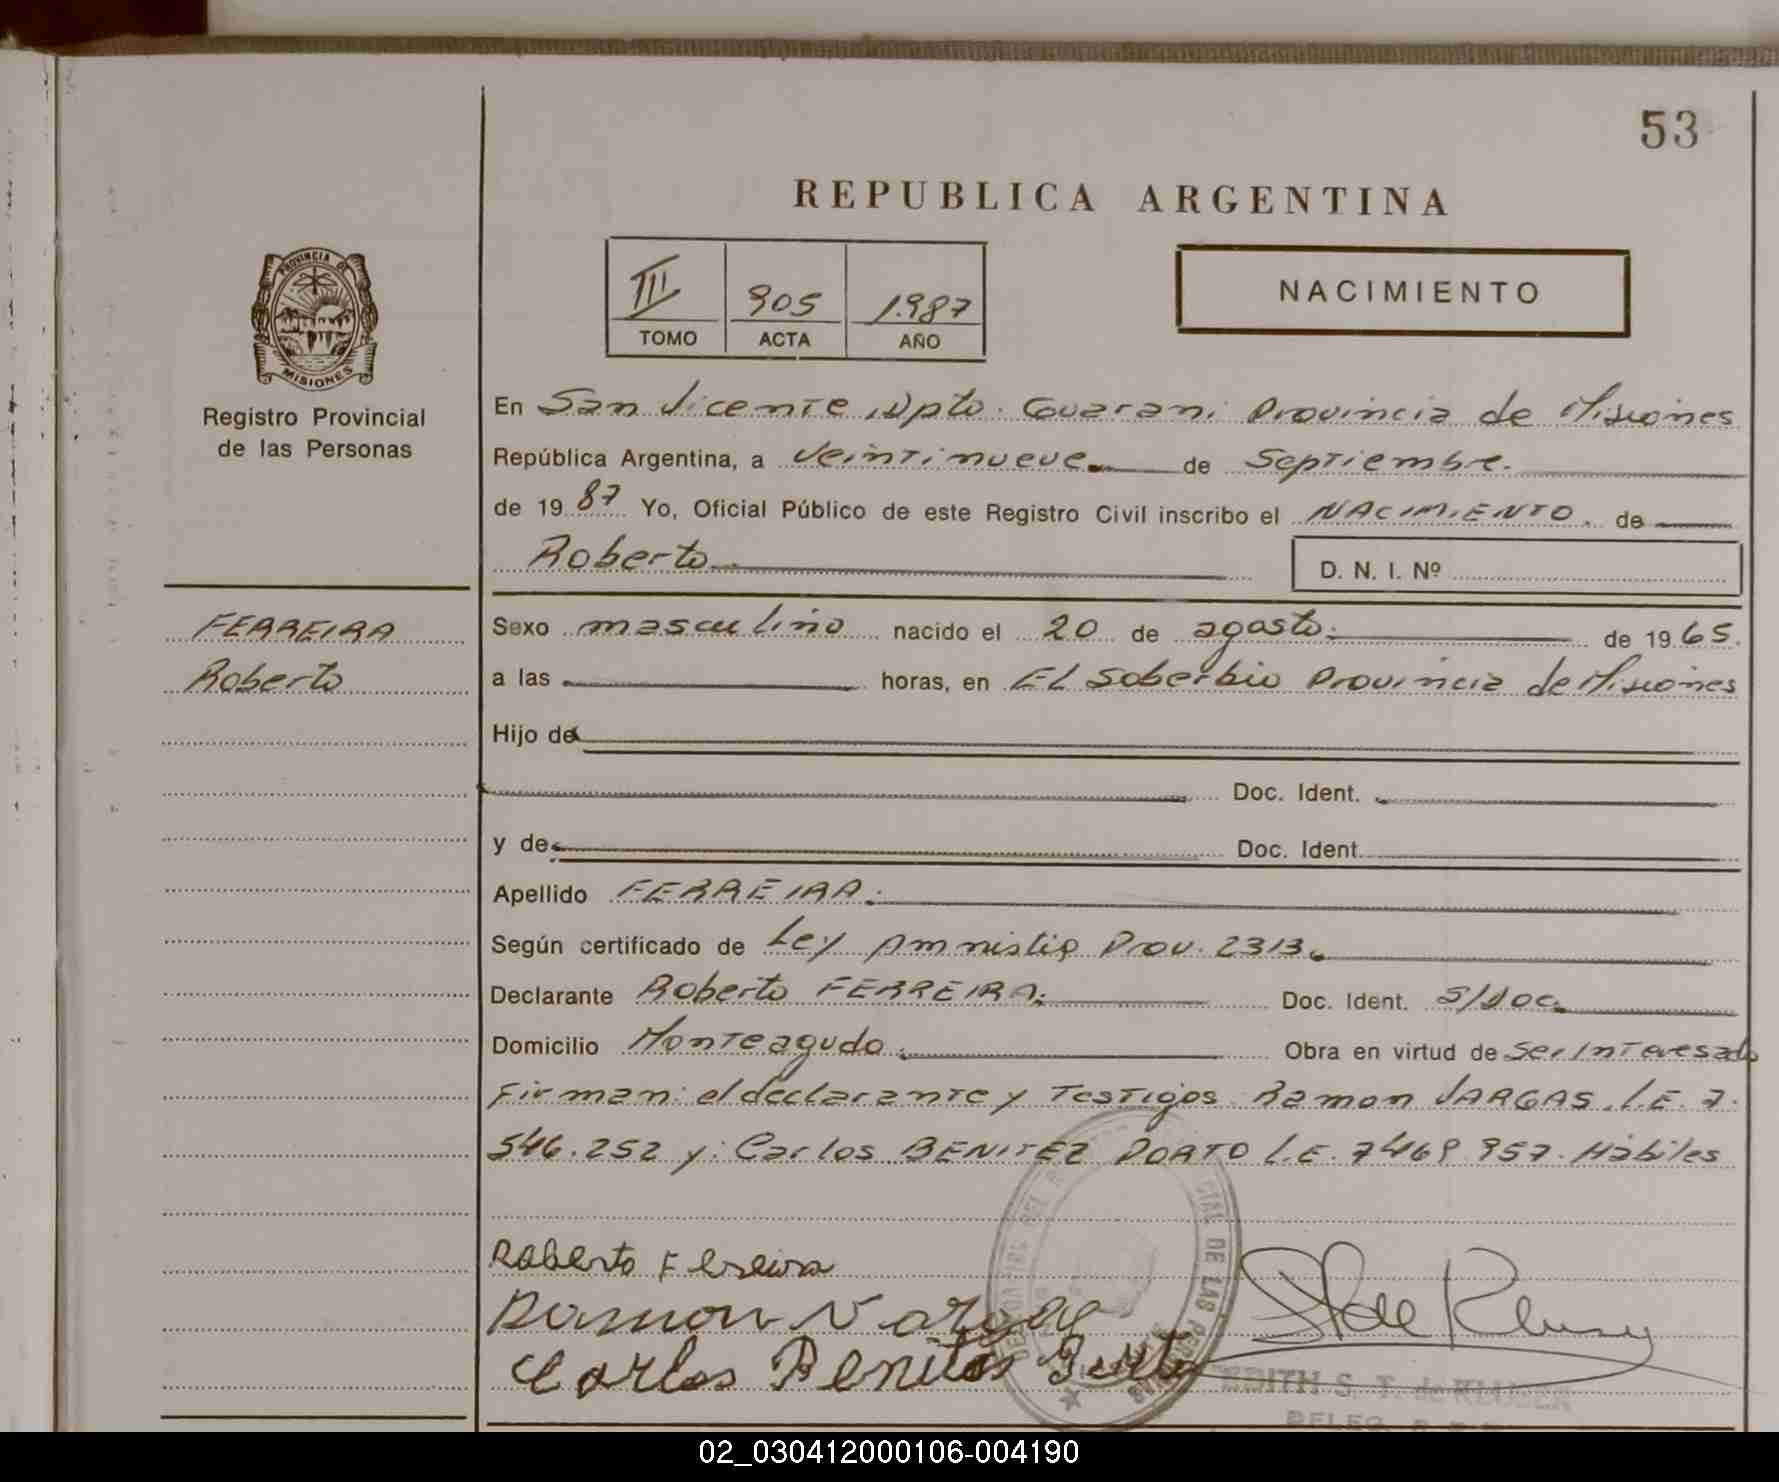 53
REPUBLICA ARGENTINA
PROVINCIA DE
MISIONES
Registro Provincial
de las Personas
III 905 1.987
TOMO ACTA AÑO
NACIMIENTO
En San Vicente, Dpto. Guarani Provincia de Misiones
República Argentina, a Veintinueve de Septiembre.
de 1987 Yo, Oficial Público de este Registro Civil inscribo el NACIMIENTO. de
Roberto
D. N. I. Nº
FERREIRA
Roberto
Sexo masculino nacido el 20 de agosto. de 1965.
a las horas, en El Soberbio Provincia de Misiones
Hijo de
Doc. Ident.
y de Doc. Ident.
Apellido FERREIRA.
Según certificado de Ley Amnistia Prov. 2313
Declarante Roberto FERREIRA. Doc. Ident. S/Doc.
Domicilio Monteagudo. Obra en virtud de ser Interesado
Firman: el declarante y Testigos Ramon VARGAS. L.E. 7.
546.252 y: Carlos BENITEZ PORTO L.E. 7469 957. Hábiles
Roberto Fereira
Ramon Vargas
Carlos Benites Porto
DE LAS
EDITH S. T. de KLUSEN
02_030412000106-004190